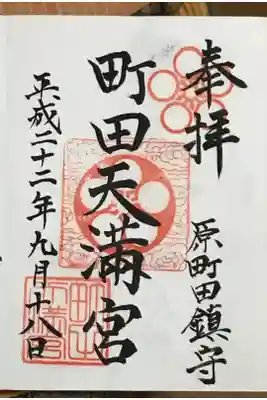 奉拝
原町田鎮守
町田天満宮
平成二十二年九月十八日